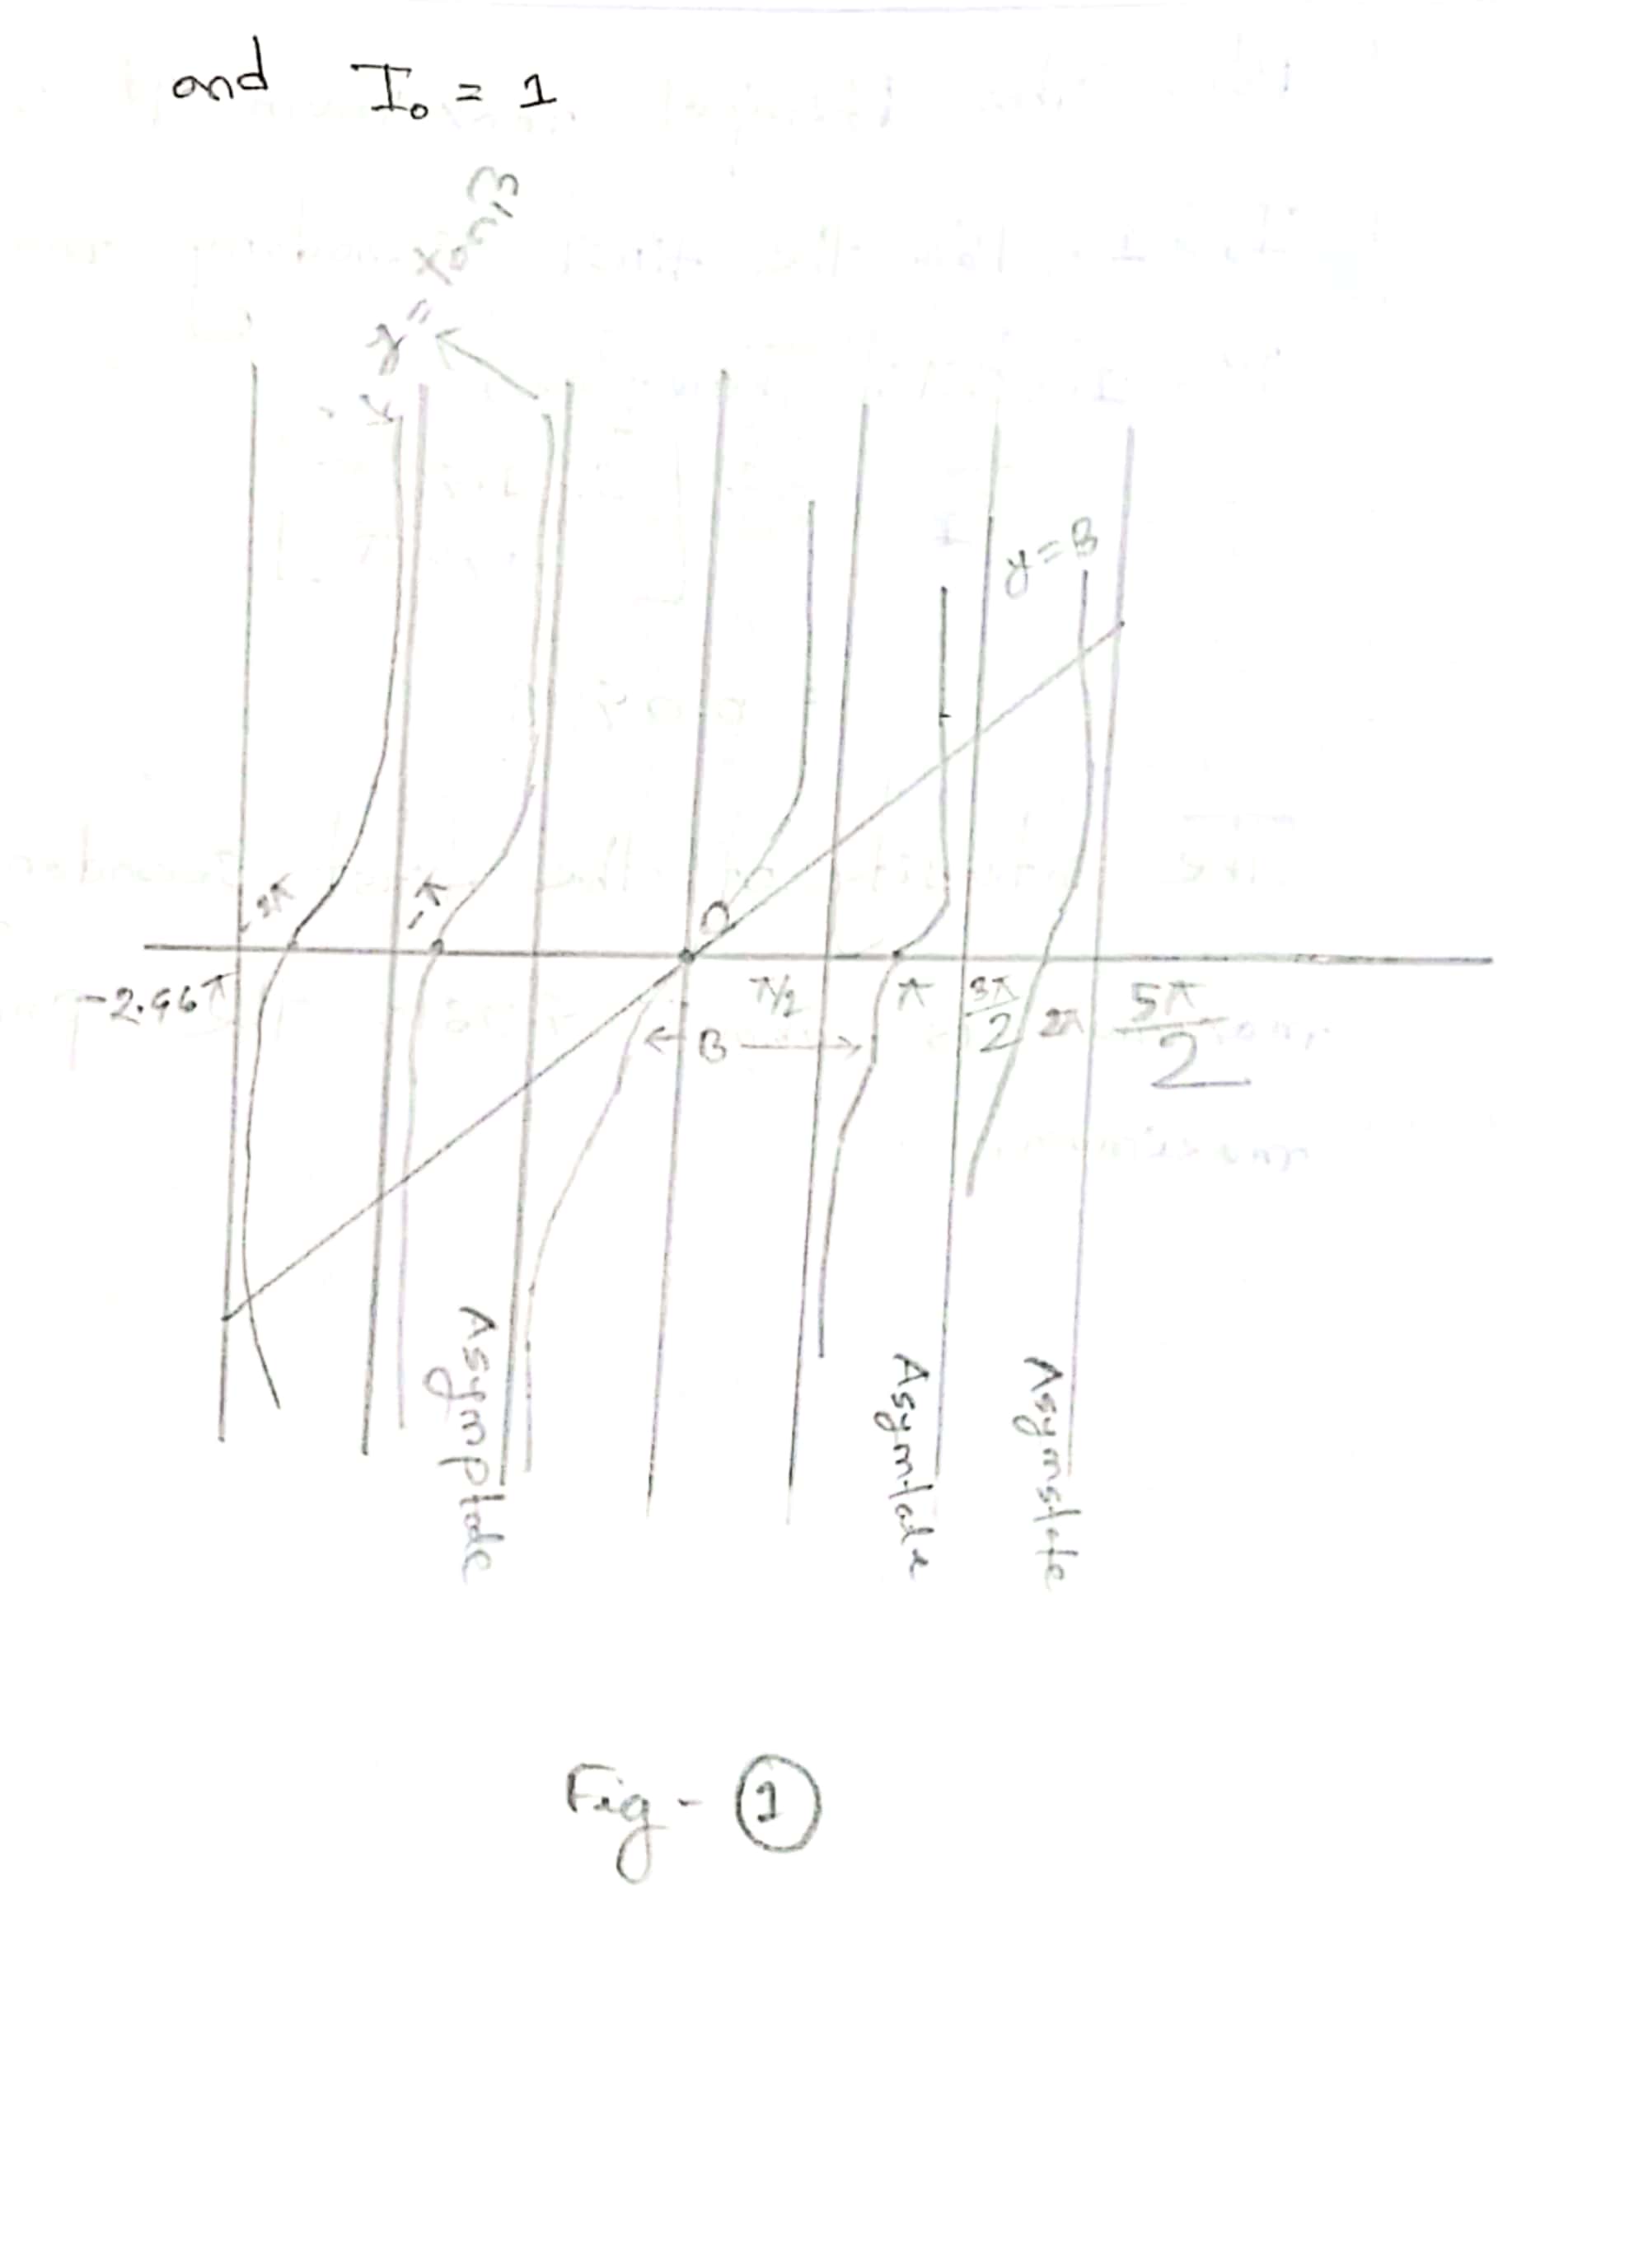 and I₀ = 1
y = tanβ
y
y = β
-2π
-π
O
-2.46π
π/2
π
3π/2
2π
5π/2
← β →
Asymptote
Asymtote
Asymstote
Fig - ①